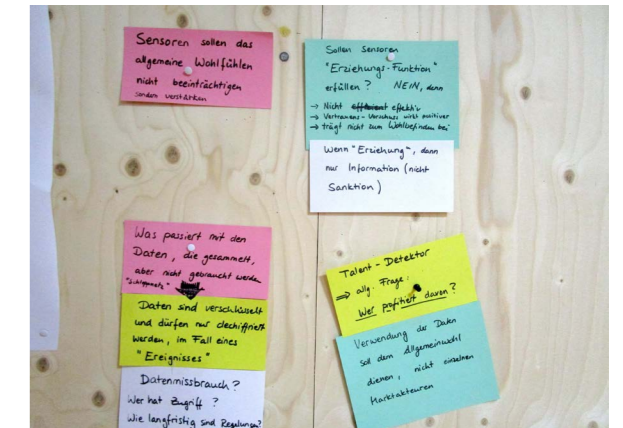 Sensoren sollen das
allgemeine Wohlfühlen
nicht beeinträchtigen
sondern verstärken
Sollen Sensoren
"Erziehungs-Funktion"
erfüllen? NEIN, denn
→ Nicht effizient effektiv
→ Vertrauens-Vorschuss wirkt positiver
→ trägt nicht zum Wohlbefinden bei
Wenn "Erziehung", dann
nur Information (nicht
Sanktion)
Was passiert mit den
Daten, die gesammelt,
aber nicht gebraucht werden
"Schleppnetz"
Daten sind verschlüsselt
und dürfen nur dechiffriert
werden, im Fall eines
"Ereignisses"
Datenmissbrauch?
Wer hat Zugriff?
Wie langfristig sind Regelungen?
Talent-Detektor
⇒ allg. Frage:
Wer profitiert davon?
Verwendung der Daten
soll dem Allgemeinwohl
dienen, nicht einzelnen
Marktakteuren